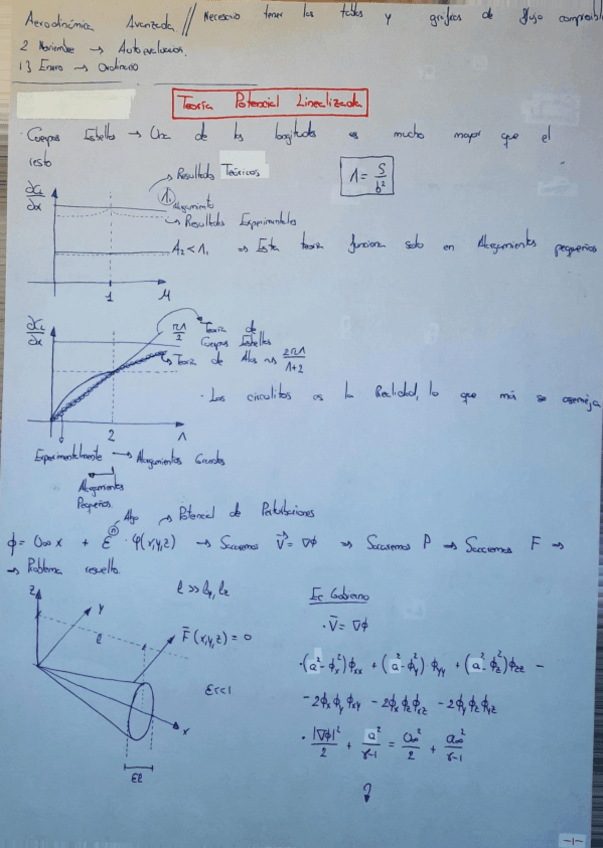 Aerodinámica Avanzada // Necesario tener las tablas y gráficas de flujo compresible
2 Noviembre → Autoevaluación.
13 Enero → Ordinario
Teoría Potencial Linealizada
· Cuerpos Esbeltos → Una de las longitudes es mucho mayor que el
resto
→ Resultados Teóricos
Λ = S/b²
∂CL/∂α
Λ₁ Alargamiento
→ Resultados Experimentales
Λ₂ < Λ₁ ⇒ Esta teoría funciona solo en Alargamientos pequeños
1 M
∂CL/∂α
πΛ/2 Teoría de
Cuerpos Esbeltos
→ Teoría de Alas → 2πΛ/Λ+2
· Los circulitos es la Realidad, lo que más se asemeja
2 Λ
Experimentalmente → Alargamientos Grandes
Alargamientos
Pequeños
(n) Algo → Potencial de Perturbaciones
ϕ = U∞ x + ε · φ(x,y,z) → Sacaremos V = ∇ϕ ⇒ Sacaremos P → Sacaremos F ⇒
→ Problema resuelto
l >> ly, lz
Ec Gobierno
z
y
l
F(x,y,z) = 0
· V̄ = ∇ϕ
· (a² - ϕx²)ϕxx + (a² - ϕy²)ϕyy + (a² - ϕz²)ϕzz -
ε<<1
- 2ϕxϕyϕxy - 2ϕxϕzϕxz - 2ϕyϕzϕyz
x
· |∇ϕ|²/2 + a²/γ-1 = U∞²/2 + a∞²/γ-1
εl
-1-